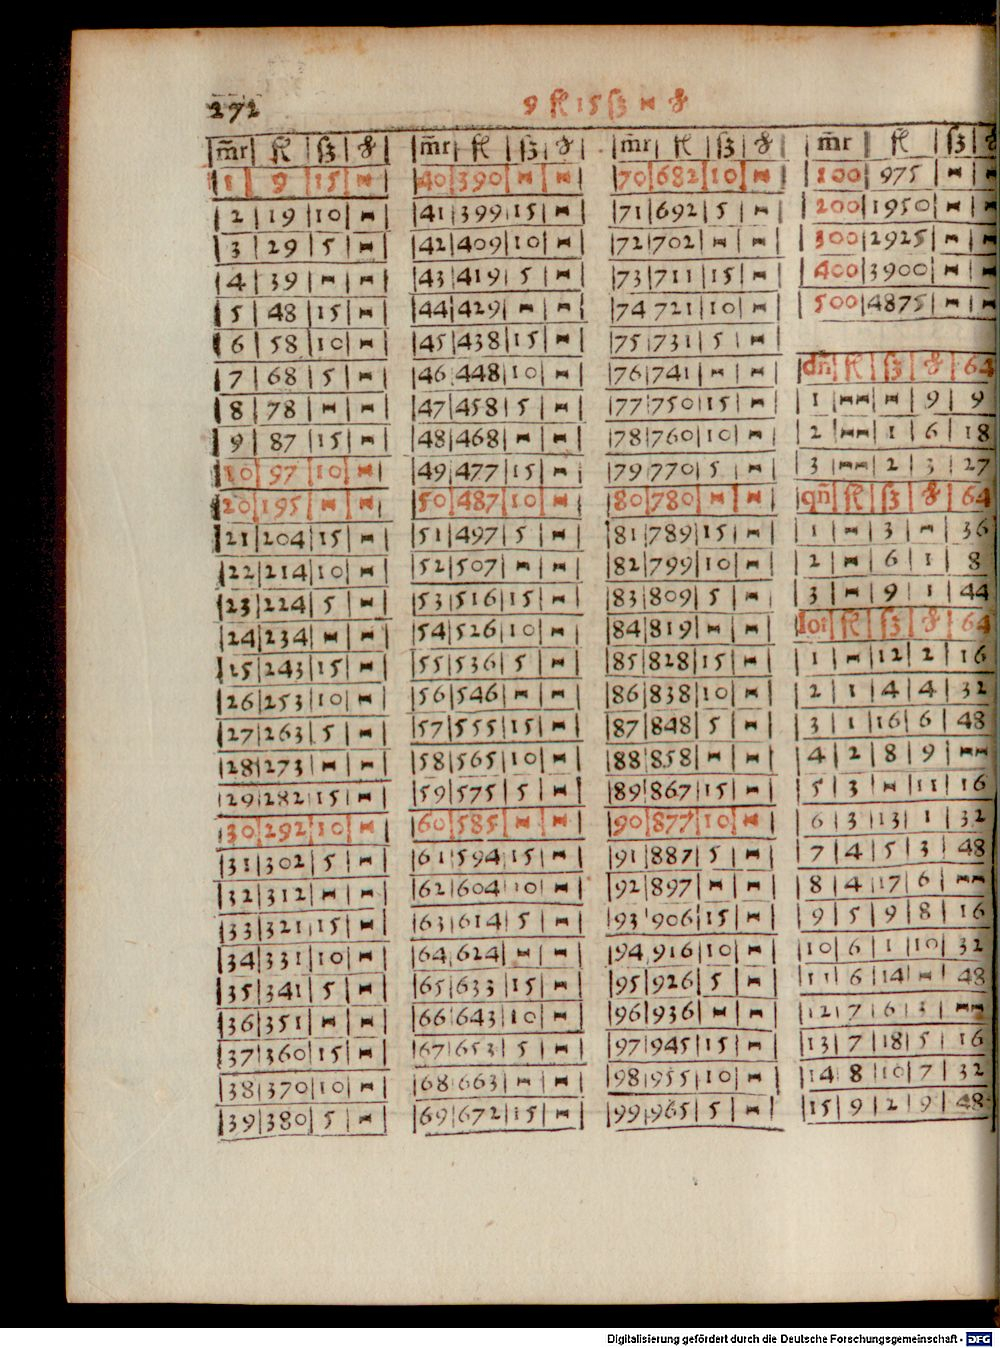 272
9 fl 15 ß ⧓ ₰
m̃r | fl | ß | ₰
1 | 9 | 15 | ⧓
2 | 19 | 10 | ⧓
3 | 29 | 5 | ⧓
4 | 39 | ⧓ | ⧓
5 | 48 | 15 | ⧓
6 | 58 | 10 | ⧓
7 | 68 | 5 | ⧓
8 | 78 | ⧓ | ⧓
9 | 87 | 15 | ⧓
10 | 97 | 10 | ⧓
20 | 195 | ⧓ | ⧓
21 | 204 | 15 | ⧓
22 | 214 | 10 | ⧓
23 | 224 | 5 | ⧓
24 | 234 | ⧓ | ⧓
25 | 243 | 15 | ⧓
26 | 253 | 10 | ⧓
27 | 263 | 5 | ⧓
28 | 273 | ⧓ | ⧓
29 | 282 | 15 | ⧓
30 | 292 | 10 | ⧓
31 | 302 | 5 | ⧓
32 | 312 | ⧓ | ⧓
33 | 321 | 15 | ⧓
34 | 331 | 10 | ⧓
35 | 341 | 5 | ⧓
36 | 351 | ⧓ | ⧓
37 | 360 | 15 | ⧓
38 | 370 | 10 | ⧓
39 | 380 | 5 | ⧓
m̃r | fl | ß | ₰
40 | 390 | ⧓ | ⧓
41 | 399 | 15 | ⧓
42 | 409 | 10 | ⧓
43 | 419 | 5 | ⧓
44 | 429 | ⧓ | ⧓
45 | 438 | 15 | ⧓
46 | 448 | 10 | ⧓
47 | 458 | 5 | ⧓
48 | 468 | ⧓ | ⧓
49 | 477 | 15 | ⧓
50 | 487 | 10 | ⧓
51 | 497 | 5 | ⧓
52 | 507 | ⧓ | ⧓
53 | 516 | 15 | ⧓
54 | 526 | 10 | ⧓
55 | 536 | 5 | ⧓
56 | 546 | ⧓ | ⧓
57 | 555 | 15 | ⧓
58 | 565 | 10 | ⧓
59 | 575 | 5 | ⧓
60 | 585 | ⧓ | ⧓
61 | 594 | 15 | ⧓
62 | 604 | 10 | ⧓
63 | 614 | 5 | ⧓
64 | 624 | ⧓ | ⧓
65 | 633 | 15 | ⧓
66 | 643 | 10 | ⧓
67 | 653 | 5 | ⧓
68 | 663 | ⧓ | ⧓
69 | 672 | 15 | ⧓
m̃r | fl | ß | ₰
70 | 682 | 10 | ⧓
71 | 692 | 5 | ⧓
72 | 702 | ⧓ | ⧓
73 | 711 | 15 | ⧓
74 | 721 | 10 | ⧓
75 | 731 | 5 | ⧓
76 | 741 | ⧓ | ⧓
77 | 750 | 15 | ⧓
78 | 760 | 10 | ⧓
79 | 770 | 5 | ⧓
80 | 780 | ⧓ | ⧓
81 | 789 | 15 | ⧓
82 | 799 | 10 | ⧓
83 | 809 | 5 | ⧓
84 | 819 | ⧓ | ⧓
85 | 828 | 15 | ⧓
86 | 838 | 10 | ⧓
87 | 848 | 5 | ⧓
88 | 858 | ⧓ | ⧓
89 | 867 | 15 | ⧓
90 | 877 | 10 | ⧓
91 | 887 | 5 | ⧓
92 | 897 | ⧓ | ⧓
93 | 906 | 15 | ⧓
94 | 916 | 10 | ⧓
95 | 926 | 5 | ⧓
96 | 936 | ⧓ | ⧓
97 | 945 | 15 | ⧓
98 | 955 | 10 | ⧓
99 | 965 | 5 | ⧓
m̃r | fl | ß | ₰
100 | 975 | ⧓ | ⧓
200 | 1950 | ⧓ | ⧓
300 | 2925 | ⧓ | ⧓
400 | 3900 | ⧓ | ⧓
500 | 4875 | ⧓ | ⧓
dñ | fl | ß | ₰ | 64
1 | ⧓⧓ | ⧓ | 9 | 9
2 | ⧓⧓ | 1 | 6 | 18
3 | ⧓⧓ | 2 | 3 | 27
qñ | fl | ß | ₰ | 64
1 | ⧓ | 3 | ⧓ | 36
2 | ⧓ | 6 | 1 | 8
3 | ⧓ | 9 | 1 | 44
lot | fl | ß | ₰ | 64
1 | ⧓ | 12 | 2 | 16
2 | 1 | 4 | 4 | 32
3 | 1 | 16 | 6 | 48
4 | 2 | 8 | 9 | ⧓⧓
5 | 3 | ⧓ | 11 | 16
6 | 3 | 13 | 1 | 32
7 | 4 | 5 | 3 | 48
8 | 4 | 17 | 6 | ⧓⧓
9 | 5 | 9 | 8 | 16
10 | 6 | 1 | 10 | 32
11 | 6 | 14 | ⧓ | 48
12 | 7 | 6 | 3 | ⧓⧓
13 | 7 | 18 | 5 | 16
14 | 8 | 10 | 7 | 32
15 | 9 | 2 | 9 | 48
Digitalisierung gefördert durch die Deutsche Forschungsgemeinschaft - DFG